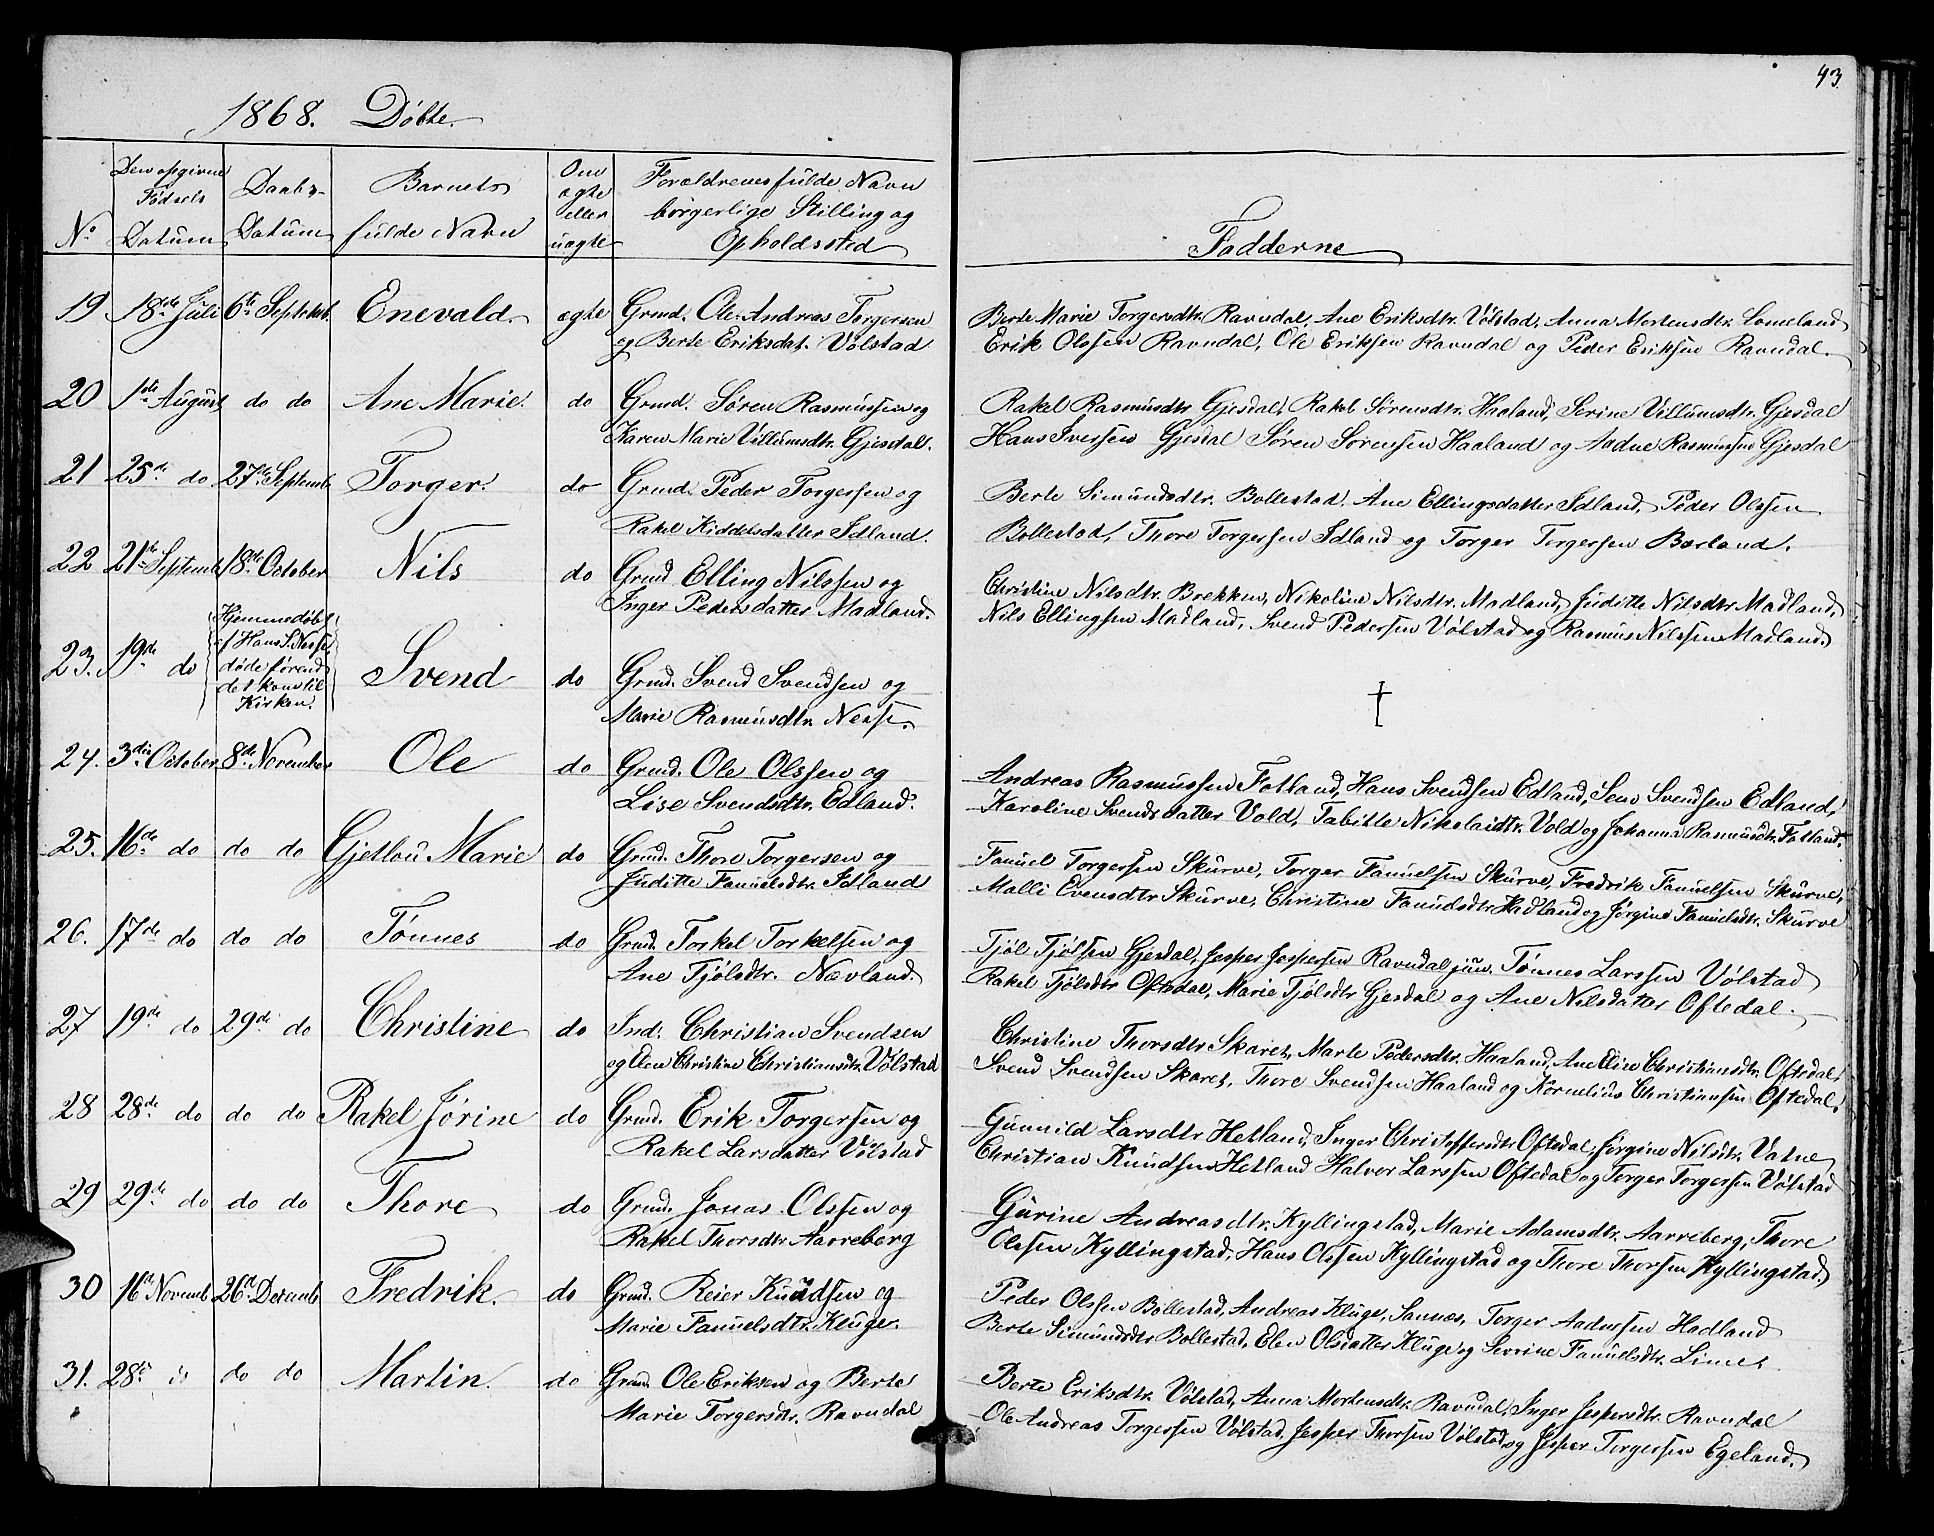 43
1868. Døbte.
No
Den opgivne Fødsels Datum
Daabs-Datum
Barnets fulde Navn
Om ægte eller uægte
Forældrenes fulde Navn borgerlige Stilling og Opholdssted
Fadderne
19 18de Juli 6te Septebr. Enevald. ægte Grmd. Ole Andreas Torgersen
og Berte Eriksdat. Vølstad
Berte Marie Torgersdtr. Ravndal, Ane Eriksdtr. Vølstad, Anna Mortensdtr. Lomeland
Erik Olsen Ravndal, Ole Eriksen Ravndal og Peder Eriksen Ravndal.
20 1ste August do do Ane Marie. do Grmd. Søren Rasmussen og
Karen Marie Villumsdtr. Gjesdal.
Rakel Rasmusdtr Gjesdal, Rakel Sørensdtr. Haaland, Serine Villumsdtr. Gjesdal
Hans Iversen Gjesdal Søren Sørensen Haaland og Aadne Rasmussen Gjesdal
21 25de do 27de Septemb. Torger. do Grmd. Peder Torgersen og
Rakel Kiddelsdatter Idland.
Berte Simundsdtr. Bollestad, Ane Ellingsdatter Idland, Peder Olssen
Bollestad, Thore Torgersen Idland og Torger Torgersen Børland.
22 21de Septemb. 18de October Nils do Grmd Elling Nilssen og
Inger Pedersdatter Madland.
Christine Nilsdtr. Brekken, Nikoline Nilsdtr. Madland, Juditte Nilsdtr Madland,
Nils Ellingsen Madland, Svend Pedersen Vølstad og Rasmus Nilssen Madland.
23. 19de do Hjemmedøbt af Hans S. Nesse, døde førend det kom til Kirken. Svend do Grmd. Svend Svendsen og
Marie Rasmusdtr. Nesse.
†
24. 3die October 8de November Ole do Grmd. Ole Olssen og
Lise Svendsdtr. Edland.
Andreas Rasmussen Fotland, Hans Svendsen Edland, Sem Svendsen Edland,
Karoline Svendsdatter Vold, Tabitte Nikolaidtr. Vold og Johanna Rasmusdtr. Fotland.
25. 16de do do do Gjetlou Marie do Grmd. Thore Torgersen og
Juditte Fanuelsdtr. Idland
Fanuel Torgersen Skurve, Torger Fanuelsen Skurve, Fredrik Fanuelsen Skurve,
Malli Evensdtr Skurve, Christine Fanuelsdtr. Hadland og Jørgine Fanuelsdtr. Skurve
26. 17de do do do Tønnes do Grmd. Torkel Torkelsen og
Ane Tjølsdtr. Nævland.
Tjøl Tjølsen Gjesdal, Jesper Jespersen Ravndal jun. Tønnes Larssen Vølstad
Rakel Tjølsdtr Oftedal, Marie Tjølsdtr Gjesdal og Ane Nilsdatter Oftedal.
27 19de do 29de do Christine do Ind. Christian Svendsen
og Elen Christine Christiansdtr. Vølstad
Christine Thorsdtr Skaret, Marte Pedersdtr. Haaland, Ane Eline Christiansdtr. Oftedal,
Svend Svendsen Skaret, Thore Svendsen Haaland og Kornelius Christiansen Oftedal.
28 28de do do do Rakel Jørine do Grmd. Erik Torgersen og
Rakel Larsdatter Vølstad
Gunnild Larsdtr Hetland, Inger Christoffersdtr Oftedal, Jørgine Nilsdtr. Vatne,
Christian Knudsen Hetland Halvor Larssen Oftedal og Torger Torgersen Vølstad
29 29de do do do Thore do Grmd. Jonas Olssen og
Rakel Thorsdtr Aarreberg
Gurine Andreasdtr. Kyllingstad, Marie Adamsdtr. Aarreberg, Thore
Olssen Kyllingstad, Hans Olssen Kyllingstad og Thore Thorsen Kyllingstad,
30 16de Novemb. 26de Decemb Fredrik. do Grmd. Reier Knudsen og
Marie Fanuelsdtr. Kluge.
Peder Olssen Bollestad, Andreas Kluge, Sannes, Torger Aadnesen Hadland
Berte Simundsdtr Bollestad, Elen Olsdatter Kluge og Sevrine Fanuelsdtr. Limes.
31. 28de do do Martin. do Grmd. Ole Eriksen og Berte
Marie Torgersdtr. Ravndal
Berte Eriksdtr. Vølstad, Anna Mortensdtr. Ravndal, Inger Jespersdtr. Ravndal
Ole Andreas Torgersen Vølstad, Jesper Thorsen Vølstad og Jesper Torgersen Egeland.